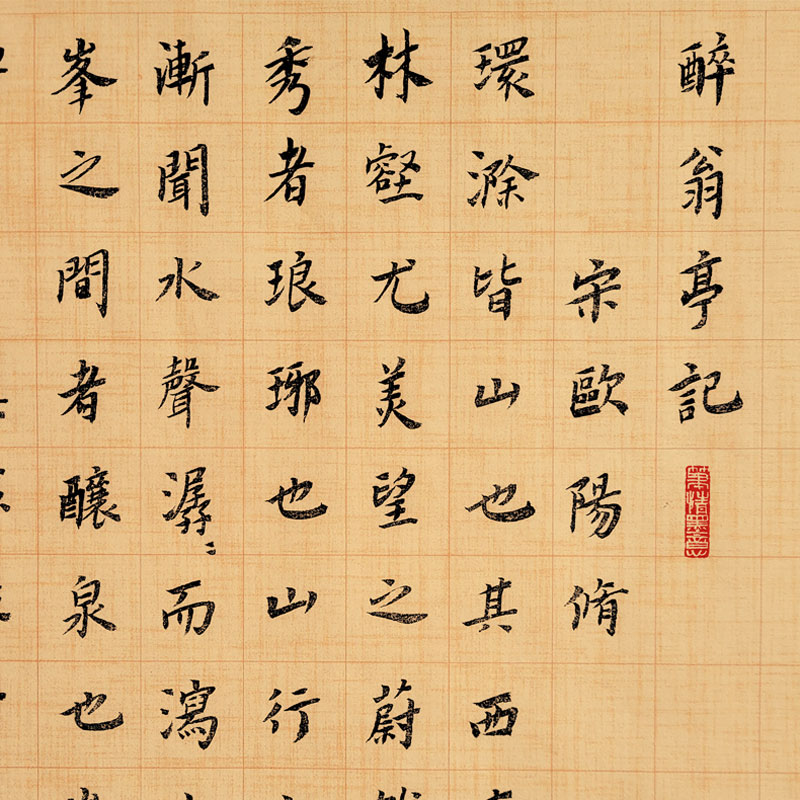 醉翁亭記
筆情墨意
宋歐陽脩
環滁皆山也其西
林壑尤美望之蔚
秀者琅琊也山行
漸聞水聲潺〻而瀉
峯之間者釀泉也